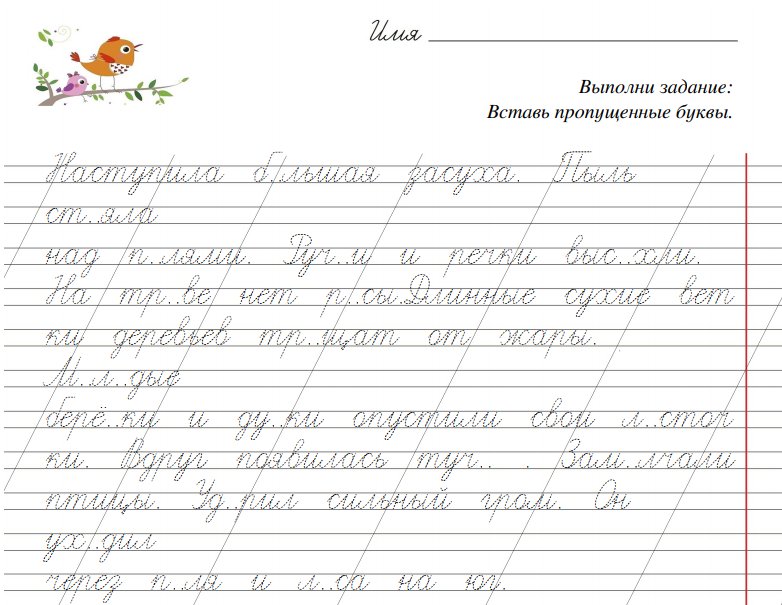 Имя
Выполни задание:
Вставь пропущенные буквы.
Наступила б..льшая засуха. Пыль
ст..яла
над п..лями. Руч..и и речки выс..хли.
На тр..ве нет р..сы.Длинные сухие вет
ки деревьев тр..щат от жары.
М..л..дые
берё..ки и ду..ки опустили свои л..сточ
ки. Вдруг появилась туч.. . Зам..лчали
птицы. Уд..рил сильный гром. Он
ух..дил
через п..ля и л..са на юг.